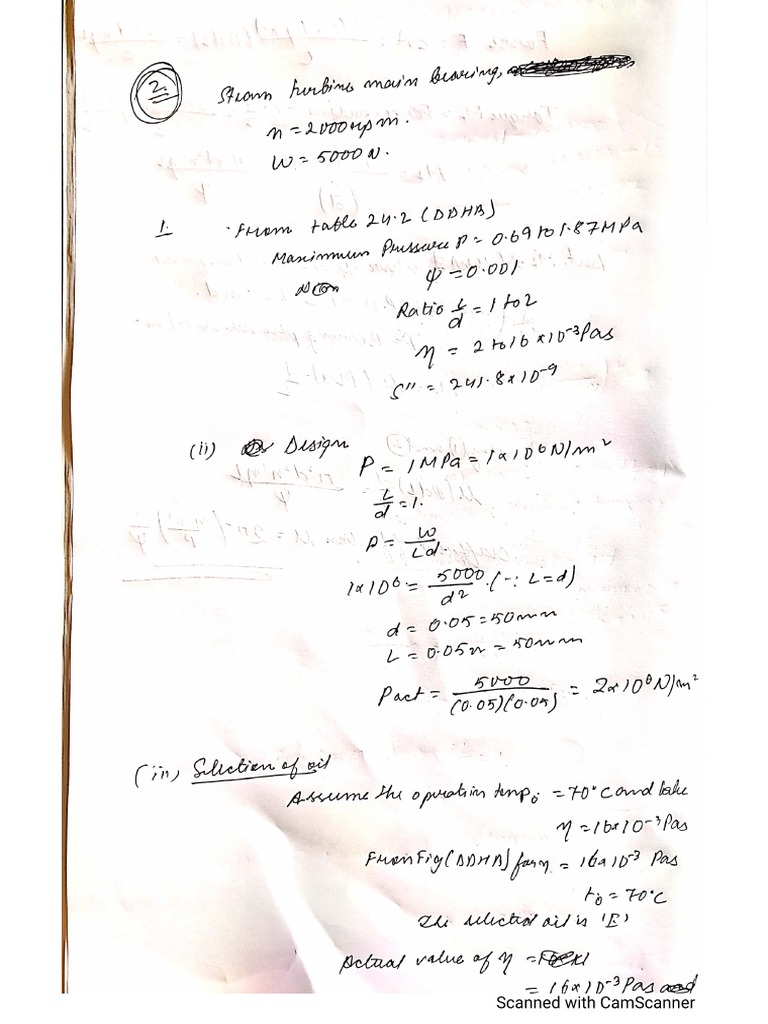 2.
Steam turbine main bearing,
n = 2000 rpm.
W = 5000 N.
1. From table 24.2 (DDHB)
Maximum Pressure P = 0.69 to 1.87 MPa
ψ = 0.001
Ratio L/d = 1 to 2
η = 2 to 16 × 10⁻³ Pas
S'' = 241.8 × 10⁻⁹
(ii) Design
P = 1 MPa = 1 × 10⁶ N/m²
L/d = 1.
P = W/Ld.
1 × 10⁶ = 5000/d² . (∵ L = d)
d = 0.05 = 50mm
L = 0.05m = 50mm
Pact = 5000/(0.05)(0.05) = 2 × 10⁶ N/m²
(iii) Selection of oil
Assume the operation temp₀ = 70°C and take
η = 16 × 10⁻³ Pas
From Fig (DDHB) for η = 16 × 10⁻³ Pas
t₀ = 70°C
The selected oil is 'E'
Actual value of η =
= 16 × 10⁻³ Pas
Scanned with CamScanner